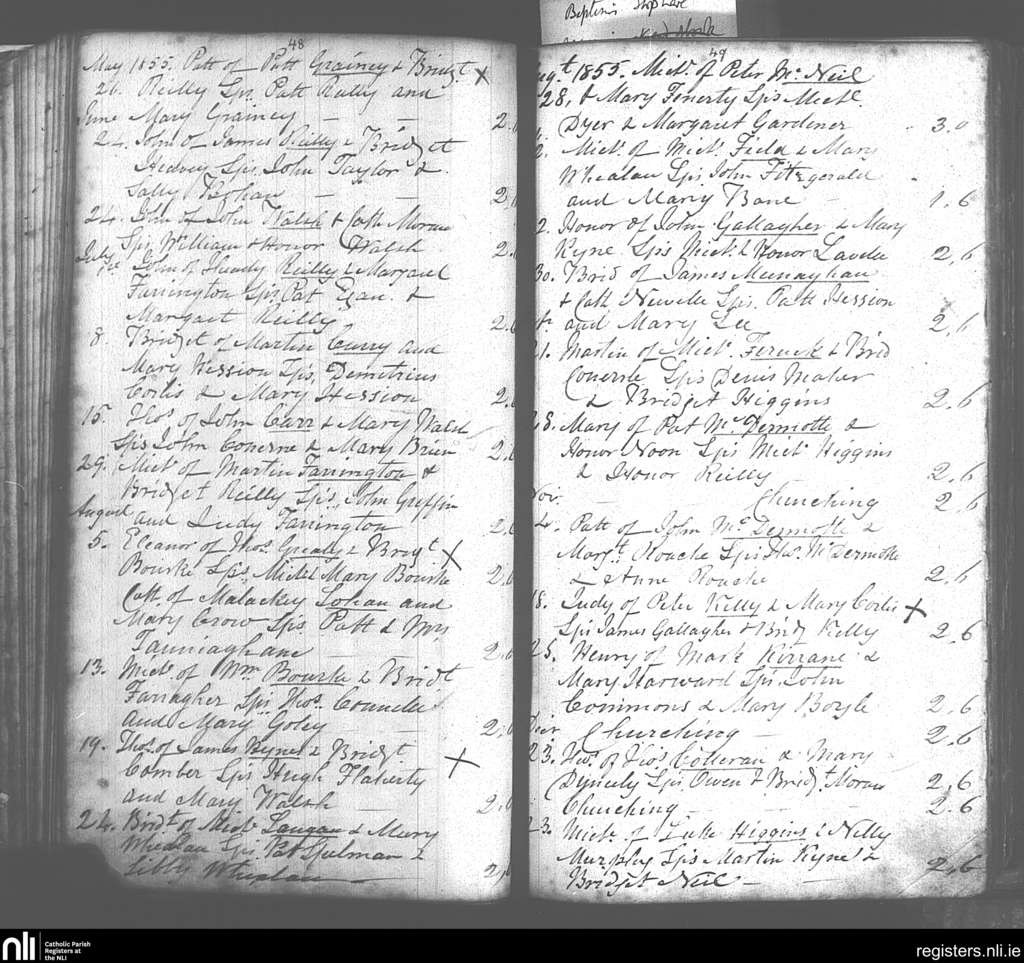 Baptisms Shop
48
May 1855. Patt of Patt Grainey & Bridgt X
26. Reilly Sps Patt Reilly and
June Mary Grainey — — 2.
24. John of James Reilly & Bridget
Sps John Taylor &
Sally — 2.
24. John of John Walsh & Cath Moran
Sps William & Honor Walsh 2.
July John of Thady Reilly & Margaret
Farrington Sps Pat Egan &
Margaet Reilly 2.
8. Bridget of Martin Curry and
Mary Hession Sps, Demetrius
Corlis & Mary Hession 2.
15. Thos of John Carr & Mary Walsh
Sps John Conerne & Mary Brien 2.
29. Michl of Martin Farrington &
Bridget Reilly Sps, John Griffin
August and Judy Farrington 2.
5. Eleanor of Thos. Grealy & Bridgt X
Bourke Sps Michl Mary Bourke 2.
Cath. of Malackey Lohan and
Mary Crow Sps Patt & Mrs
Tauniaghane 2.
13. Michl of Wm Bourke & Bridt
Farragher Sps Thos.
and Mary Goley 2.
19. Thos. of James Kyne & Bridgt. X
Comber Sps Hugh Flaherty
and Mary Walsh 2.
24. Bridt of Michl Langan & Mary
Whealan Sps. Pat Spelman &
Libby Whealan 2.
49
Augt 1855. Michl of Peter McNeil
28, & Mary Finerty Sps Michl.
Dyer & Margaret Gardener 3.0
2. Michl of Michl Field & Mary
Whealan Sps John Fitzgerald
and Mary Bane — 1.6
2. Honor of John Gallagher & Mary
Kyne Sps Michl & Honor Lavelle 2,6
30. Brid of James Munaghan
& Cath Neville Sps. Patt Hession
and Mary Lee 2,6
21. Martin of Michl. Ferick & Brid
Conerne Sps Denis Maher
& Bridget Higgins 2.6
28. Mary of Pat McDermotte &
Honor Noon Sps Michl Higgins
& Honor Reilly 2.6
Nov. — Churching 2.6
4. Patt of John McDermotte &
Margt. Roache Sps Thos. McDermotte
& Anne Roache 2.6
18. Judy of Peter Kelly & Mary Corlis X
Sps James Gallagher & Bridg Kelly 2.6
25. Henry of Mark Kirrane &
Mary Harward Sps. John
Commons & Mary Boyle 2,6
Churching — 2.6
23. Thos. of Thos Cotteran & Mary
Sps Owen & Bridgt. Moran 2,6
Churching — 2.6
23. Michl. of Luke Higgins & Nelly
Murphy Sps Martin Kyne &
Bridget Neil — 2,6
nli
Catholic Parish
Registers at
the NLI
registers.nli.ie